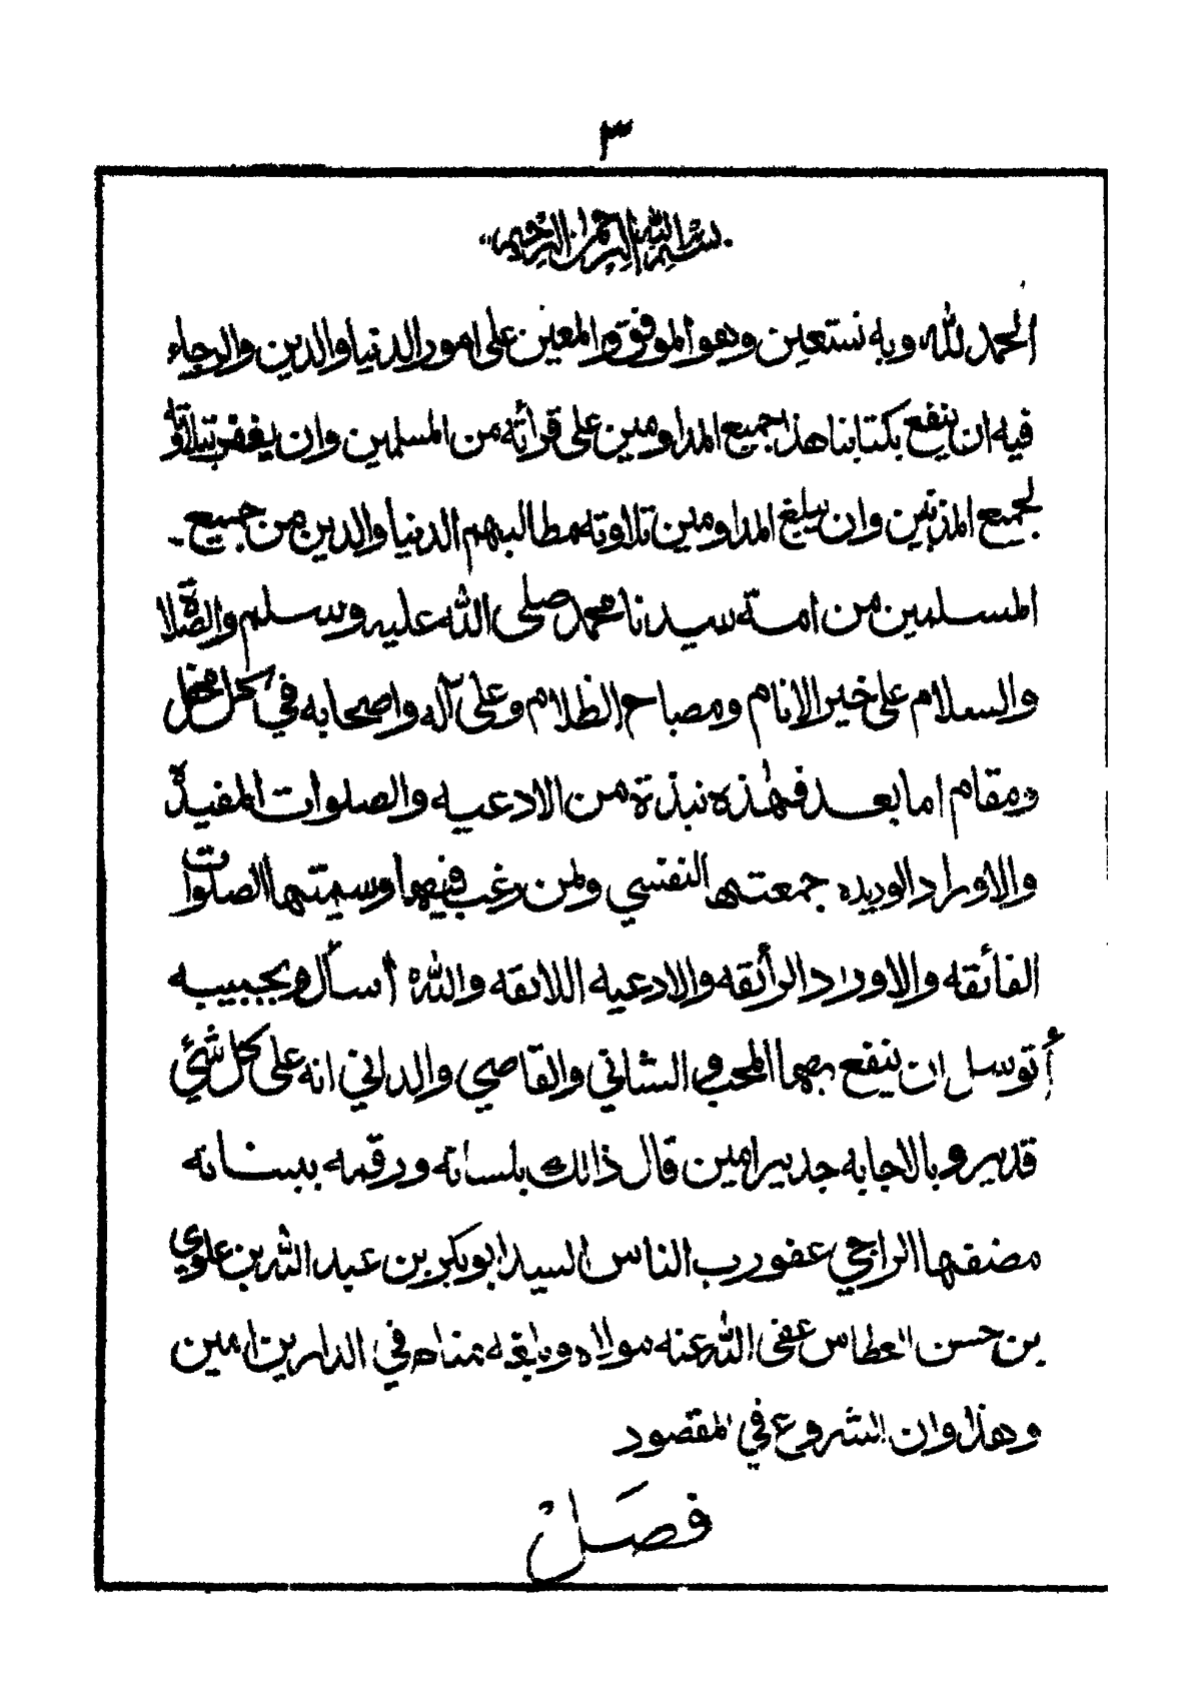 ٣
بسم الله الرحمن الرحيم
الحمد لله وبه نستعين وهو الموفق والمعين على امور الدنيا والدين والرجاء
فيه ان ينفع بكتابنا هذا جميع المداومين على قرأته من المسلمين وان يغفر بتلاوته
لجميع المذنبين وان يبلغ المداومين تلاوته مطالبهم الدنيا والدين من جميع
المسلمين من امة سيدنا محمد صلى الله عليه وسلم والصلاة
والسلام على خير الانام ومصباح الظلام وعلى آله واصحابه في كل محفل
ومقام اما بعد فهذه نبذة من الادعيه والصلوات المفيدة
والاوراد الوريده جمعتها لنفسي ولمن رغب فيها وسميتها الصلوات
الفائقه والاوراد الرائقه والادعيه اللائقه والله أسأل وبحبيبه
أتوسل ان ينفع بها المحب والشاني والقاصي والداني انه على كل شئي
قدير وبالاجابه جدير امين قال ذالك بلسانه ورقمه ببنانه
مصنفها الراجي عفو رب الناس السيد ابو بكر بن عبد الله بن علوي
بن حسن العطاس عفى الله عنه مولاه وبلغه مناه في الدارين امين
وهذا اوان الشروع في المقصود
فصل